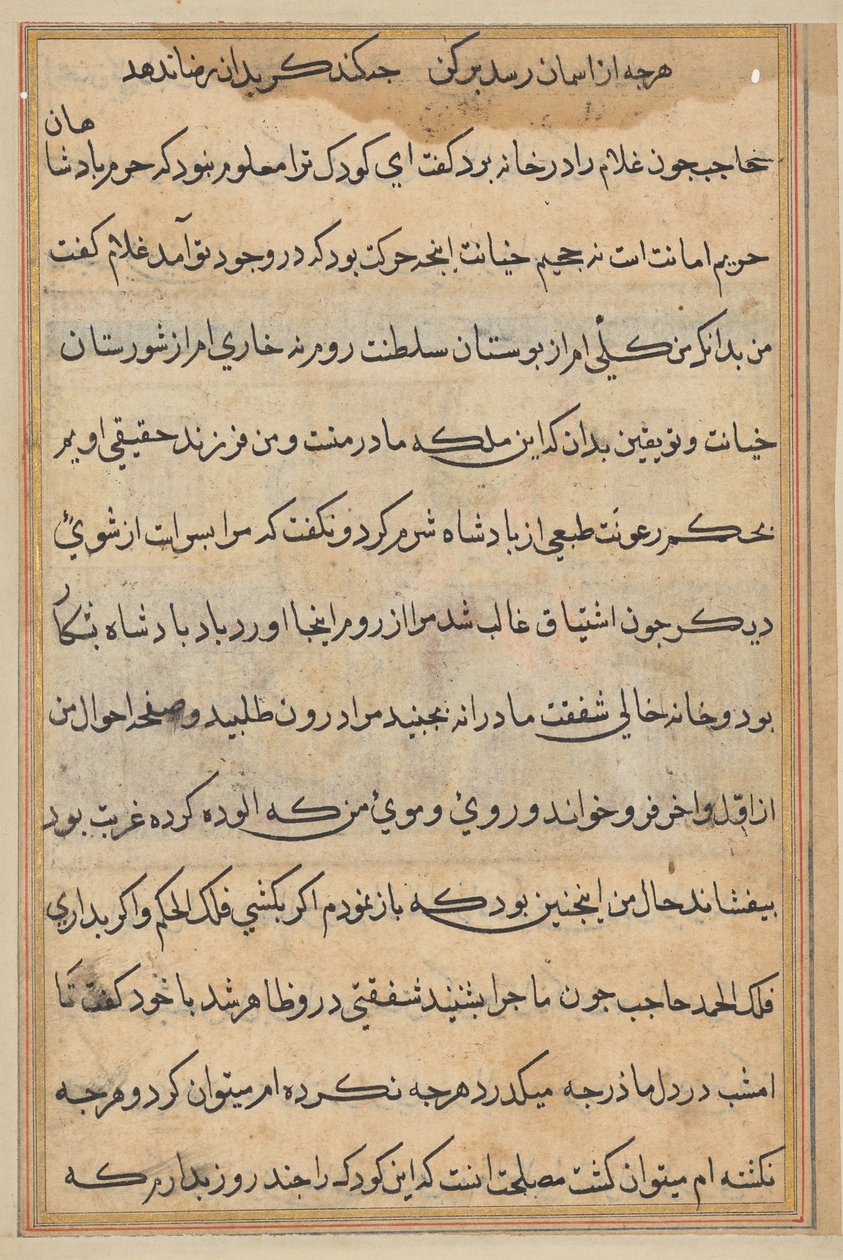 هرچه از اسمان رسد بر کن جه کند کر بدان رضا ندهد
حاجب جون غلام را در خانه برد کفت ای کودک ترا معلوم نبود که حرم بادشاهان
حریم امانت است نه جحیم خیانت اینجه حرکت بود که در وجود تو آمد غلام کفت
من بدانک من کلی ام از بوستان سلطنت روم نه خاری ام از شورستان
خیانت و تو یقین بدان که این ملکه مادر منست و من فرزند حقیقی اویم
بحکم رعونت طبعی از بادشاه شرم کرد و نکفت که مرا بسر است از شوئ
دیکر جون اشتیاق غالب شد مرا از روم اینجا اورد باد بادشاه بشکار
بود و خانه خالی شفقت مادرانه بجنبید مرا درون طلبید و صفحه احوال من
از اوّل و اخر فرو خواند و روئ و موئ من که الوده کرده غربت بود
بیفشاند حال من اینجنین بود که باز نمودم اکر بکشی فلک الحکم و اکر بداری
فلک الحمد حاجب جون ماجرا بشنید شفقتی درو ظاهر شد با خود کفت تا
امشب در دل ما در جه میکدرد هرجه نکرده ام میتوان کرد و هرجه
نکشته ام میتوان کشت مصلحت انست که این کودک را جند روز بدارم که